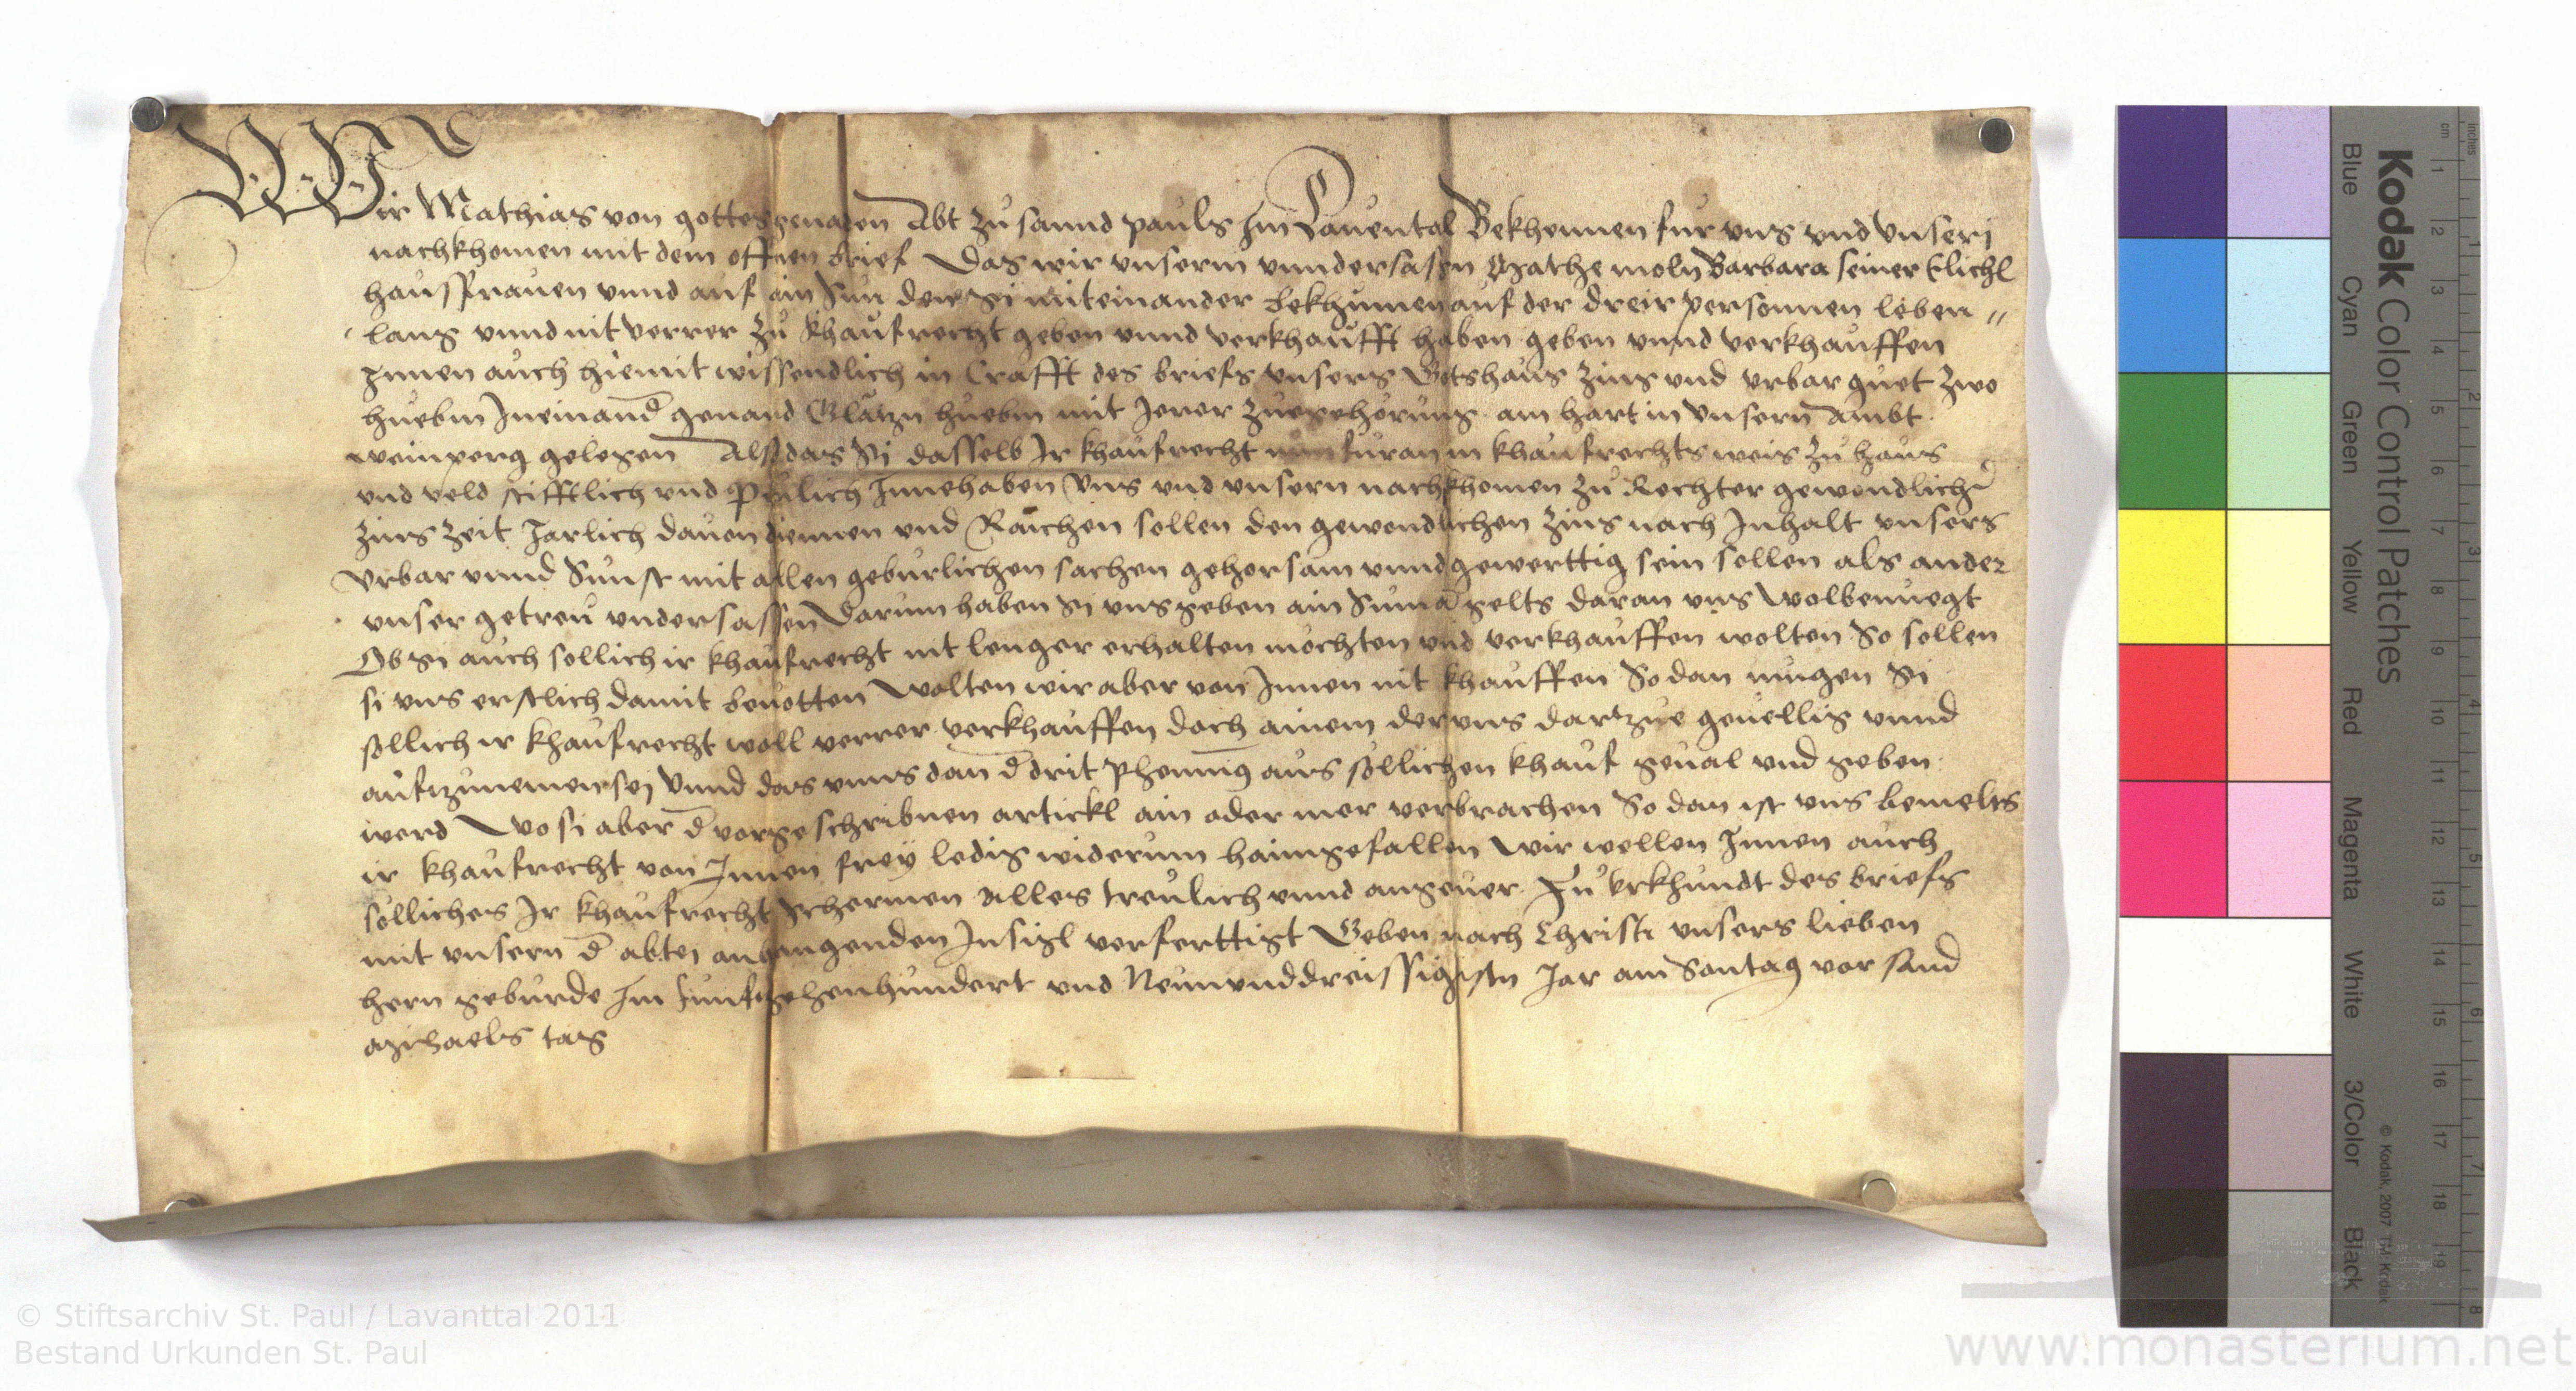 Wir Mathias von gottes genaden Abt zu sannd pauls Im Lauental Bekhennen fur uns und Unserj
nachkhomen mit dem offnen brief Das wir unserm unndersassen Mathe moln Barbara seiner Elichl
hausfrauen unnd auf ain Sun den Si miteinander bekhumen auf der dreir personnen leben //
lang unnd nit verrer zu khaufrecht geben unnd verkhaufft haben geben unnd verkhauffen
Innen auch hiemit wissendlich in Crafft des briefs unsers Gotshaus zins und urbar guet zwo
huebm Ineinand genand huebm mit Jerer zuegehorung am hart in Unsern Ambt
weinperg gelegen Also das Si dasselb Ir khaufrecht nun furan in khaufrechts weis zu haus
und veld stifftlich und Peulich Innehaben Uns und unsern nachkhomen zu Rechter gewondlich
zins zeit Jarlich dauon diennen und Raichen sollen den gewondlichen zins nach Inhalt unsers
Urbar unnd Sunst mit allen geburlichen sachen gehorsam unnd gewerttig sein sollen als ander
unser getreu undersassen Darum haben Si uns geben ain Suma gelts daran uns wolbenuegt
Ob Si auch sollich ir khaufrecht nit lenger erhalten mochten und verkhauffen wolten So sollen
si uns erstlich damit beuotten Wolten wir aber von Innen nit khauffen So dan mugen Si
sollich ir khaufrecht woll verrer verkhauffen doch ainem der uns dartzue geuellig unnd
aufzunemen sej Unnd das unns dan d drit phennig aus sollichen khauf geual und geben
werd Wo si aber d vorgeschribnen artickl ain oder mer verbrachen So dan ist uns bemelts
ir khaufrecht von Innen freÿ ledig widerum haimgefallen Wir wellen Innen auch
solliches Ir khaufrecht schermen Alles treulich unnd angeuer Zu Urkhundt des briefs
mit unsern d abtej anhangenden Insigl verferttigt Geben nach Christi unsers lieben
hern geburde Im funfzehenhundert und Neununddreissigistn Jar am Sontag vor sand
Michaels tag
Kodak Color Control Patches
© Kodak, 2007 TM: Kodak
Blue Cyan Green Yellow Red Magenta White 3/Color Black
cm 1 2 3 4 5 6 7 8 9 10 11 12 13 14 15 16 17 18 19
inches 1 2 3 4 5 6 7 8
© Stiftsarchiv St. Paul / Lavanttal 2011
Bestand Urkunden St. Paul
www.monasterium.net